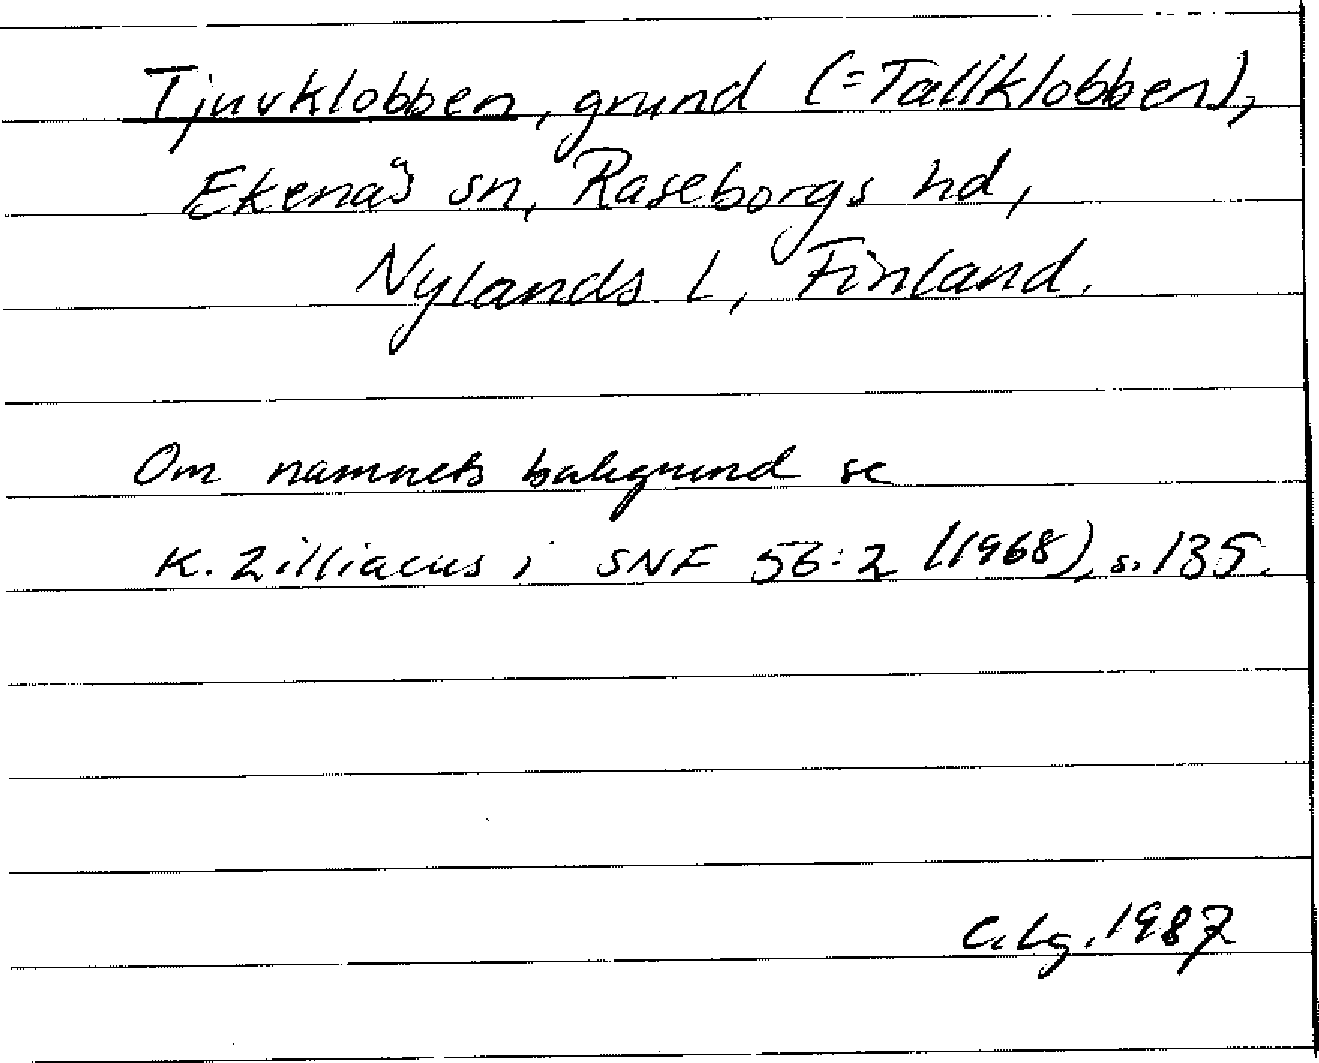 Tjuvklobben, grund (=Tallklobben),
Ekenäs sn, Raseborgs hd,
Nylands l, Finland.
Om namnets bakgrund se
K. Zilliacus i SNF 56:2 (1968), s. 135.
C. Lg. 1987